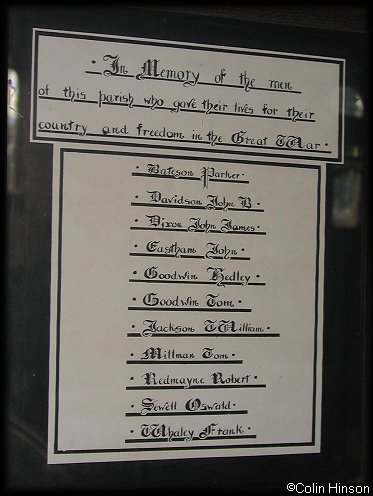 · In Memory of the men
of this parish who gave their lives for their
country and freedom in the Great War ·
· Bateson Parker ·
· Davidson John B ·
· Dixon John James ·
· Eastham John ·
· Goodwin Hedley ·
· Goodwin Tom ·
· Jackson William ·
· Millman Tom ·
· Redmayne Robert ·
· Sewell Oswald ·
· Whaley Frank ·
©Colin Hinson